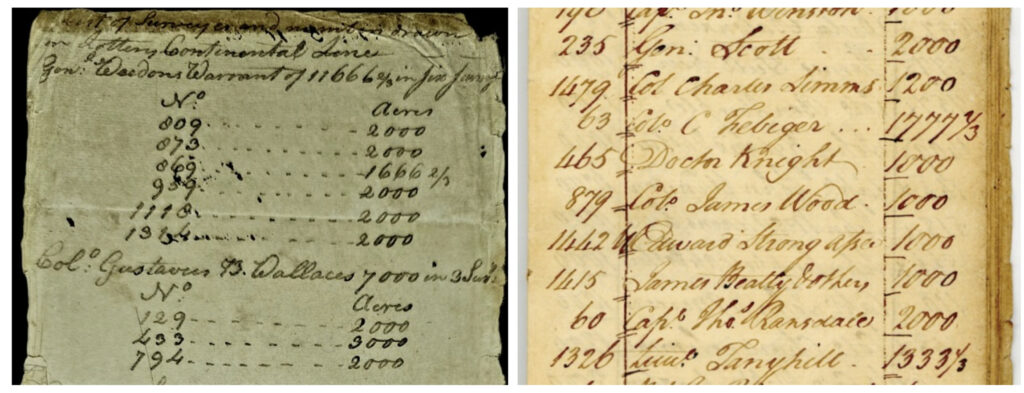 of Surveys and numbers drawn
in lottery Continental Line
Genl. Weedons Warrant of 11666 2/3 in six Survys
No. Acres
809 2000
873 2000
869 1666 2/3
939 2000
1118 2000
1314 2000
Colo. Gustavus B. Wallaces 7000 in 3 Survs
No. Acres
129 2000
433 3000
794 2000
190 Capt. Jno. Winston 1000
235 Genl. Scott 2000
1479 Col Charles Simms 1200
63 Colo. C Febiger 1777 2/3
465 Doctor Knight 1000
879 Colo. James Wood 1000
1442 Edward Strong assee 1000
1415 James Beatty & others 1000
60 Capt. Thos. Ransdale 2000
1326 Lieut. Tanyhill 1333 1/3